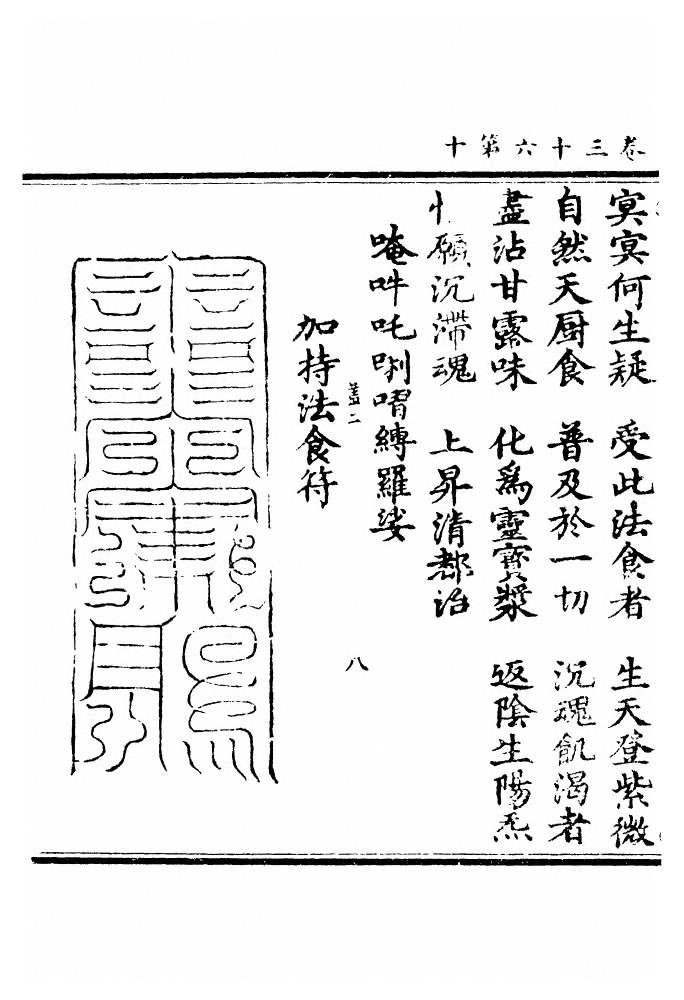 卷三十六第十
冥冥何生疑　受此法食者　生天登紫微
自然天厨食　普及於一切　沉魂飢渴者
盡沾甘露味　化爲靈寶漿　返陰生陽炁
願沉滯魂　上昇清都治
唵吽吒唎㗭縛羅娑
蓋二　八
加持法食符